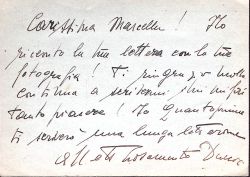 Carissima Marcella! Ho
ricevuto la tua lettera con la tua
fotografia! Ti ringrazio molto
continua a scrivermi che mi fai
tanto piacere! Io quanto prima
ti scriverò una lunga lettera
Affettuosamente